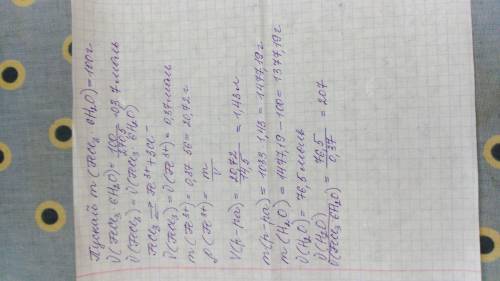 Пускай m(FeCl₃ 6H₂O) = 100 г
ν(FeCl₃ 6H₂O) = 100/270,5 = 0,37 моль
ν(FeCl₃) = ν(FeCl₃ 6H₂O)
FeCl₃ ⇄ Fe³⁺ + 3Cl⁻
ν(FeCl₃) = ν(Fe³⁺) = 0,37 моль
m(Fe³⁺) = 0,37 · 56 = 20,72 г
ρ(Fe³⁺) = m/V
V(р-ра) = 20,72/14,5 = 1,43 л
m(р-ра) = 1033 · 1,43 = 1477,19 г
m(H₂O) = 1477,19 - 100 = 1377,19 г
ν(H₂O) = 76,5 моль
ν(H₂O)/ν(FeCl₃ 6H₂O) = 76,5/0,37 = 207